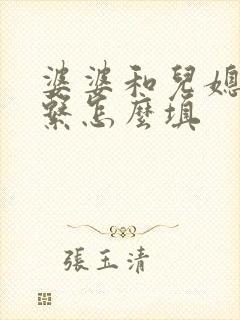 婆婆和兒媳
繫怎麼填
張玉清